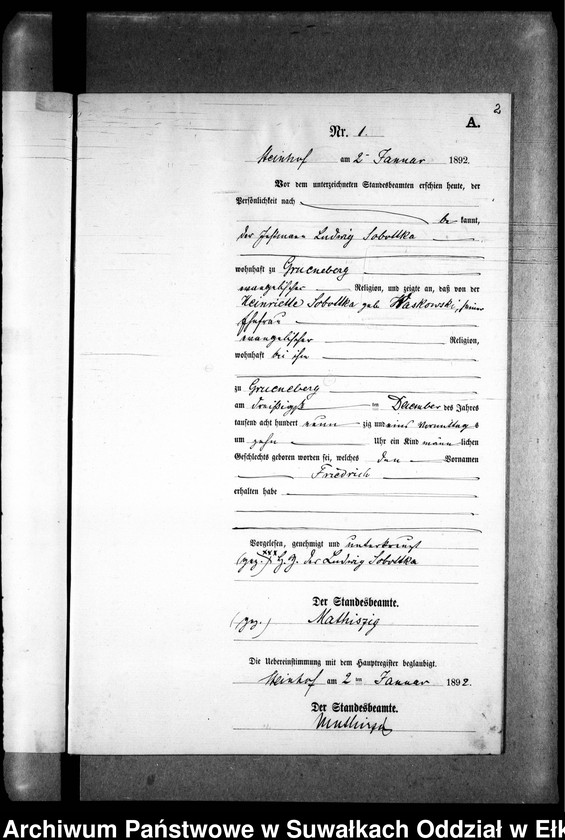 2
A.
Nr. 1.
Steinhof am 2 Januar 1892.
Vor dem unterzeichneten Standesbeamten erschien heute, der
Persönlichkeit nach
be kannt,
der Ludwig Sobottka
wohnhaft zu Grueneberg
evangelischer Religion, und zeigte an, daß von der
Heinriette Sobottka geb. Waskowski, seiner
Ehefrau
evangelischer Religion,
wohnhaft bei ihm
zu Grueneberg
am dreißigst en Dezember des Jahres
tausend acht hundert neun zig und eins Vormittag s
um zehn Uhr ein Kind männ lichen
Geschlechts geboren worden sei, welches den Vornamen
Friedrich
erhalten habe
Vorgelesen, genehmigt und unterkreuzt
(gez. xxx) H. Z. des Ludwig Sobottka
Der Standesbeamte.
(gez.) Mathiszig
Die Uebereinstimmung mit dem Hauptregister beglaubigt.
Steinhof am 2 ten Januar 1892.
Der Standesbeamte.
Mathiszig
Archiwum Państwowe w Suwałkach Oddział w Ełk